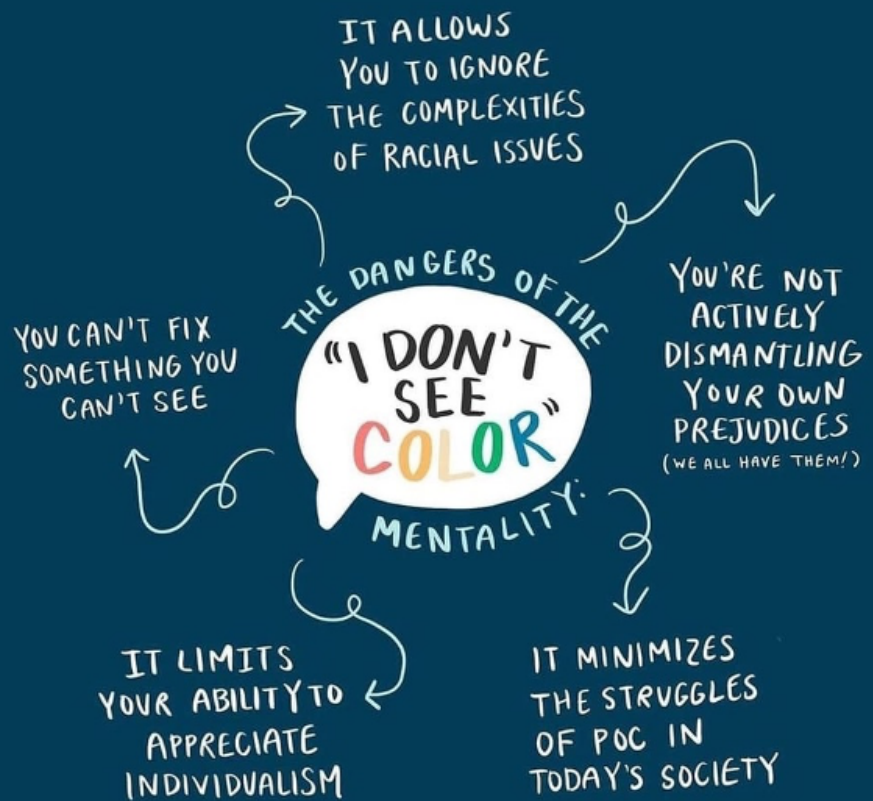 THE DANGERS OF THE
"I DON'T
SEE
COLOR"
MENTALITY:
IT ALLOWS
YOU TO IGNORE
THE COMPLEXITIES
OF RACIAL ISSUES
YOU'RE NOT
ACTIVELY
DISMANTLING
YOUR OWN
PREJUDICES
(WE ALL HAVE THEM!)
IT MINIMIZES
THE STRUGGLES
OF POC IN
TODAY'S SOCIETY
IT LIMITS
YOUR ABILITY TO
APPRECIATE
INDIVIDUALISM
YOU CAN'T FIX
SOMETHING YOU
CAN'T SEE